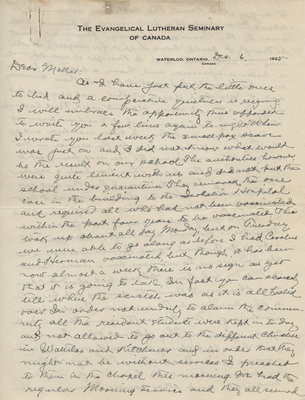 THE EVANGELICAL LUTHERAN SEMINARY
OF CANADA
WATERLOO, ONTARIO, Dec. 6, 1925
CANADA
Dear Mother:
As I have just put the little ones
to bed and a comparative quietness is reigning
I will embrace the opportunity thus afforded
to write you a few lines again to-night. When
I wrote you last week the small pox scare
was just on and I did not know what would
be the result on our school. The authorities however
were quite lenient with us and did not put the
school under quarantine. They removed the one
case in the building to the Isolation Hospital
and required all who had not been vaccinated
within the past four years to be vaccinated. This
was up about all day Monday, but on Tuesday
we were able to go along as before. I had
and Herman vaccinated, but though it has been
now almost a week there is no sign as yet
that it is going to take. In fact you can scarcely
tell where the scratch was as it is all healed
over. In order not unduly to alarm the commun-
ity all the resident students were kept in to-day
and not allowed to go out to the different churches
in Waterloo and Kitchener and in order that they
might not be without services I preached
to them in the chapel this morning. We had the
regular Morning Service and they all seemed